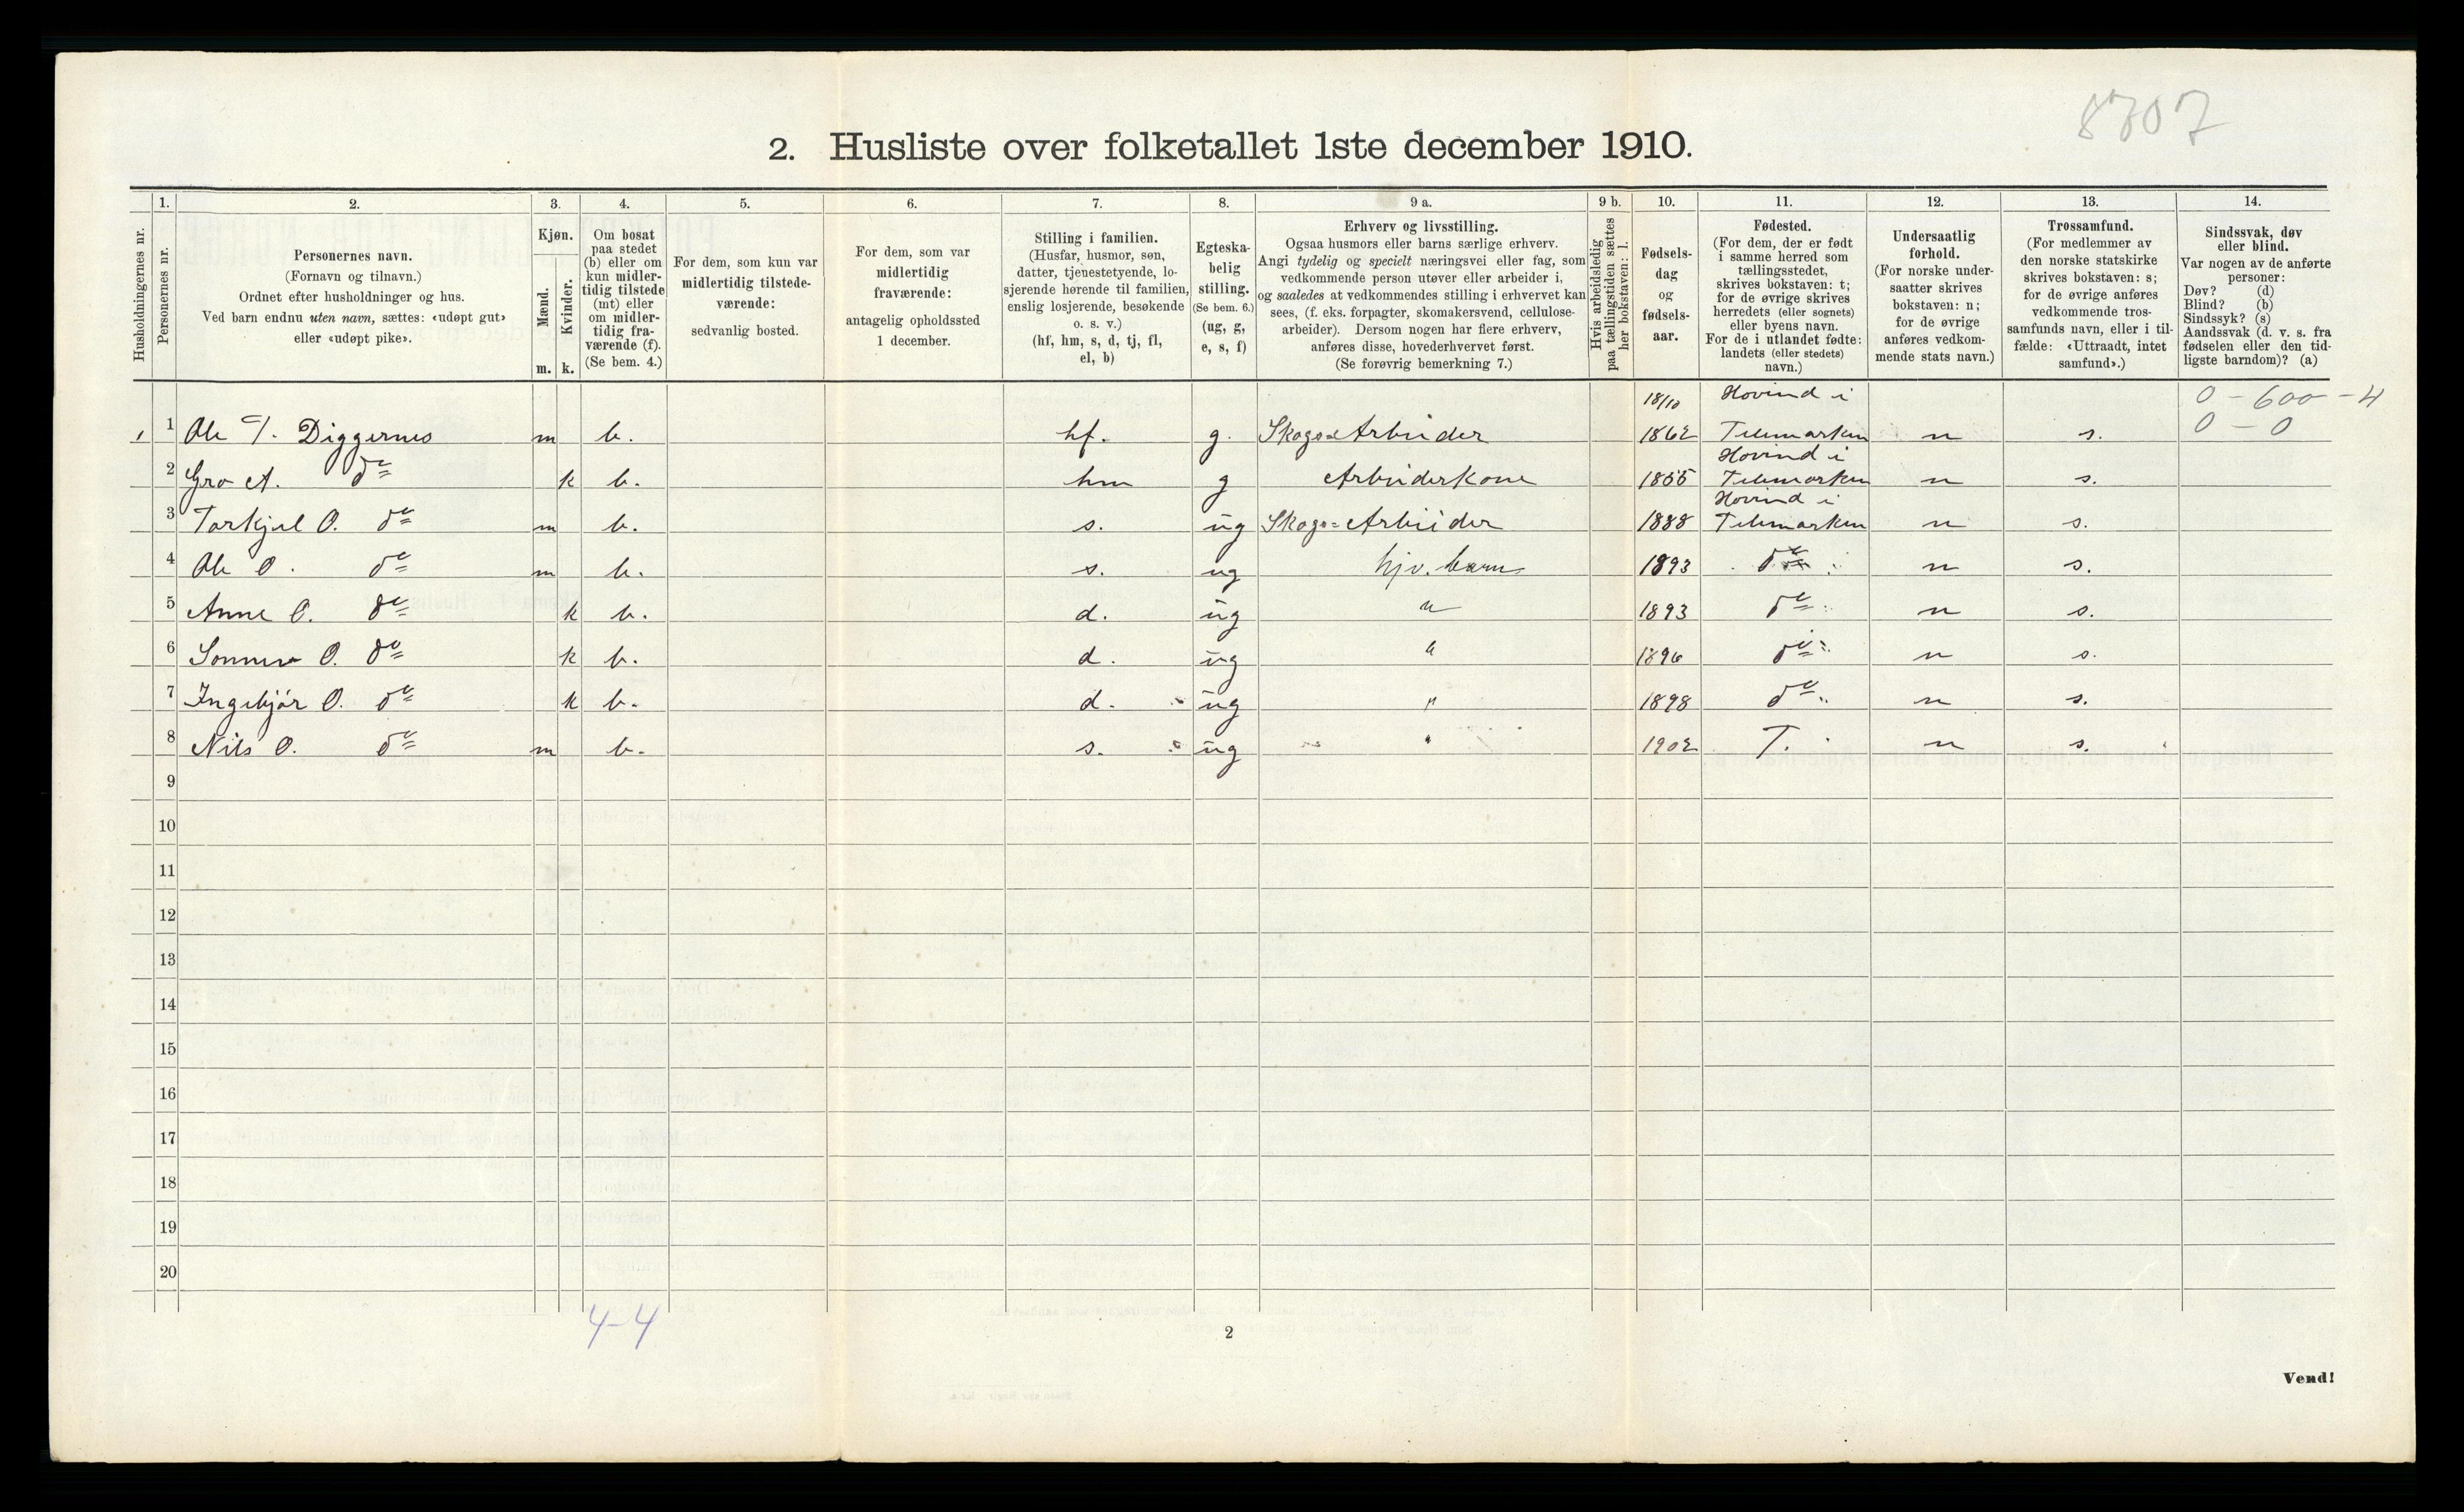 8707
2. Husliste over folketallet 1ste december 1910.
Husholdningernes nr.
1.
Personernes nr.
2.
Personernes navn.
(Fornavn og tilnavn.)
Ordnet efter husholdninger og hus.
Ved barn endnu uten navn, sættes: «udøpt gut»
eller «udøpt pike».
3.
Kjøn.
Mænd.
Kvinder.
m. k.
4.
Om bosat
paa stedet
(b) eller om
kun midler-
tidig tilstede
(mt) eller
om midler-
tidig fra-
værende (f).
(Se bem. 4.)
5.
For dem, som kun var
midlertidig tilstede-
værende:
sedvanlig bosted.
6.
For dem, som var
midlertidig
fraværende:
antagelig opholdssted
1 december.
7.
Stilling i familien.
(Husfar, husmor, søn,
datter, tjenestetyende, lo-
sjerende hørende til familien,
enslig losjerende, besøkende
o. s. v.)
(hf, hm, s, d, tj, fl,
el, b)
8.
Egteska-
belig
stilling.
(Se bem. 6.)
(ug, g,
e, s, f)
9 a.
Erhverv og livsstilling.
Ogsaa husmors eller barns særlige erhverv.
Angi tydelig og specielt næringsvei eller fag, som
vedkommende person utøver eller arbeider i,
og saaledes at vedkommendes stilling i erhvervet kan
sees, (f. eks. forpagter, skomakersvend, cellulose-
arbeider). Dersom nogen har flere erhverv,
anføres disse, hovederhvervet først.
(Se forøvrig bemerkning 7.)
9 b.
Hvis arbeidsledig
paa tællingstiden sættes
her bokstaven: l.
10.
Fødsels-
dag
og
fødsels-
aar.
11.
Fødested.
(For dem, der er født
i samme herred som
tællingsstedet,
skrives bokstaven: t;
for de øvrige skrives
herredets (eller sognets)
eller byens navn.
For de i utlandet fødte:
landets (eller stedets)
navn.)
12.
Undersaatlig
forhold.
(For norske under-
saatter skrives
bokstaven: n;
for de øvrige
anføres vedkom-
mende stats navn.)
13.
Trossamfund.
(For medlemmer av
den norske statskirke
skrives bokstaven: s;
for de øvrige anføres
vedkommende tros-
samfunds navn, eller i til-
fælde: «Uttraadt, intet
samfund».)
14.
Sindssvak, døv
eller blind.
Var nogen av de anførte
personer:
Døv? (d)
Blind? (b)
Sindssyk? (s)
Aandssvak (d. v. s. fra
fødselen eller den tid-
ligste barndom)? (a)
18/10 Hovind i 0 - 600 - 4
1 Ole T. Diggernes m b. hf. g. Skogs=Arbeider 1862 Telemarken n s. 0 - 0
Hovind i
2 Gro A. do k b. hm g Arbeiderkone 1855 Telemarken n s.
Hovind i
3 Torkjel O. do m b. s. ug Skogs=Arbeider 1888 Telemarken n s.
4 Ole O. do m b. s. ug hjv. barn 1893 do n s.
5 Anne O. do k b. d. ug " 1893 do n s.
6 O. do k b. d. ug " 1896 do n s.
7 Ingebjør O. do k b. d. ug " 1898 do n s.
8 Nils O. do m b. s. ug " 1902 T. n s.
9
10
11
12
13
14
15
16
17
18
19
20
4-4
2
Vend!